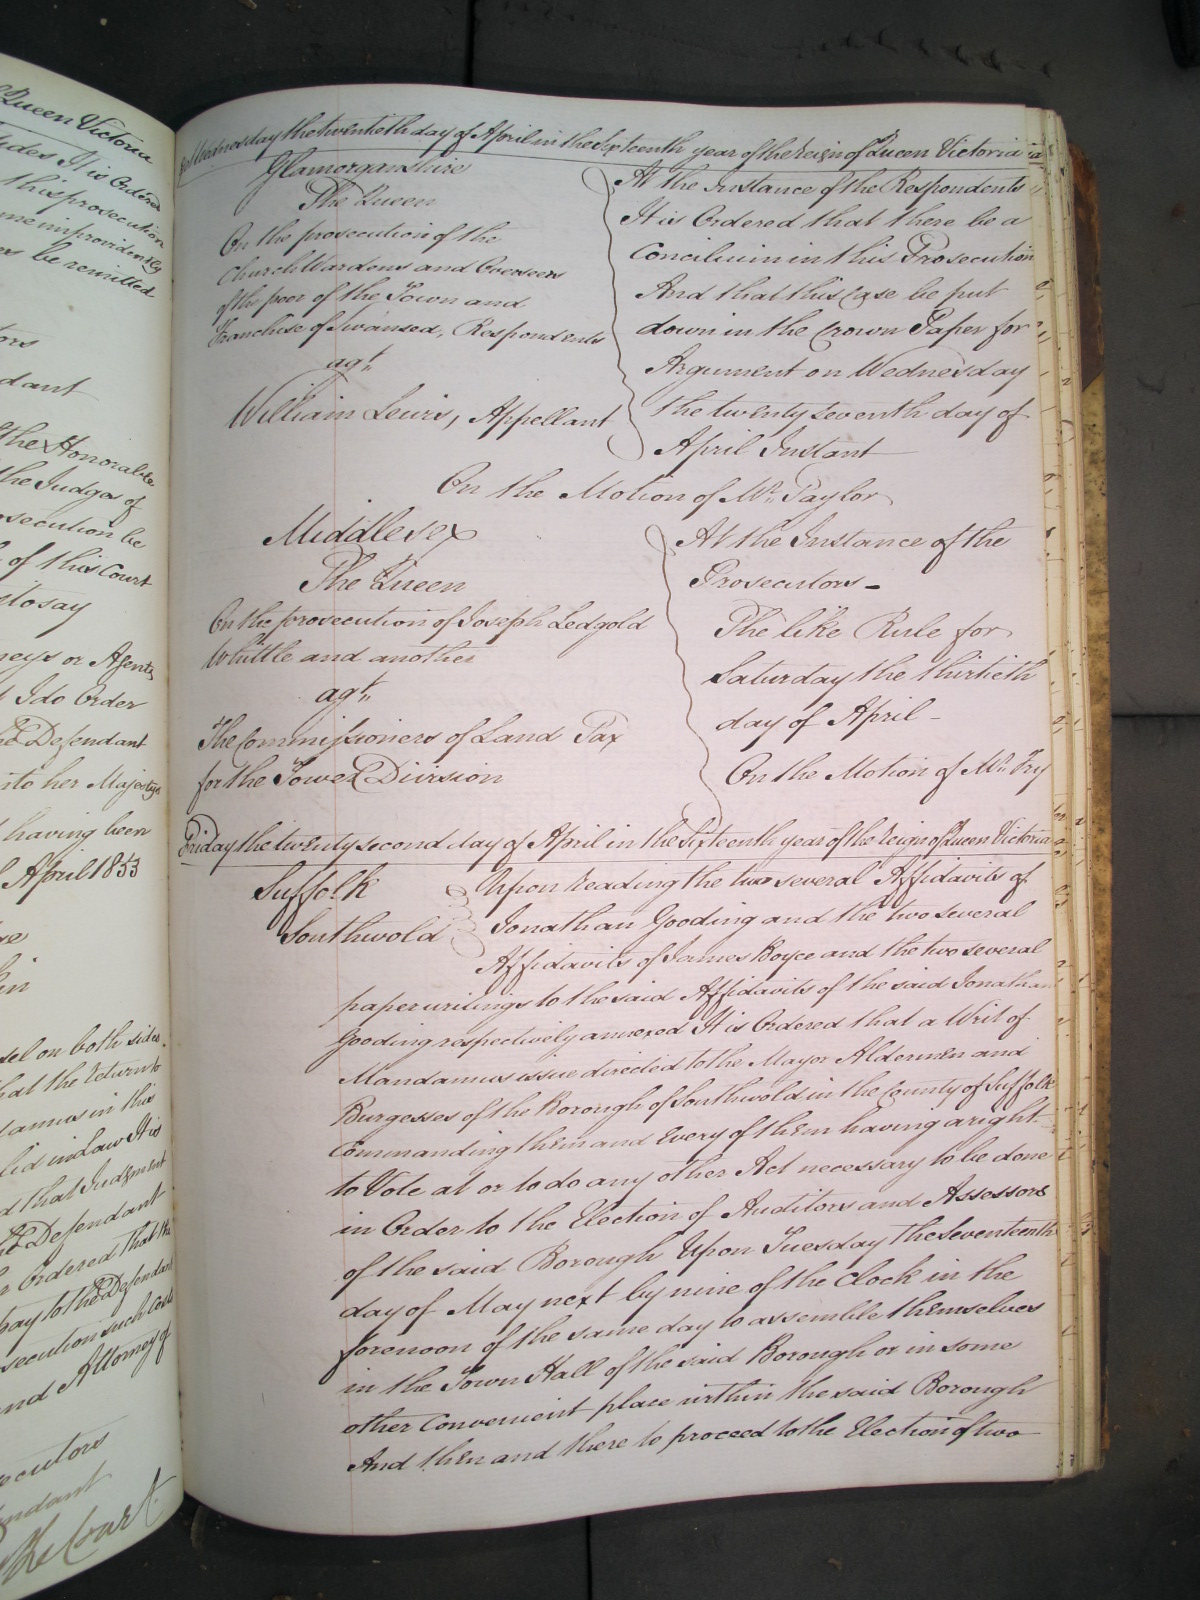 Queen Victoria
It is Ordered
this prosecution
me improvidently
be remitted
dant
the Honorable
the Judges of
secution be
of this Court
to say
neys or Agents
I do Order
Defendant
to her Majestys
having been
April 1853
sel on both sides
hat the return to
damus in this
lid in Law It is
d that Judgment
Defendant
Ordered that the
pay to the Defendant
secution such costs
and Attorney of
ecutors
endant
By the Court
Wednesday the twentieth day of April in the Sixteenth year of the Reign of Queen Victoria
Glamorganshire
The Queen
On the prosecution of the
Church Wardens and Overseers
of the poor of the Town and
Franchise of Swansea, Respondents
agt.
William Lewis, Appellant
At the Instance of the Respondents
It is Ordered that there be a
Concilium in this Prosecution
And that this Case be put
down in the Crown Paper for
Argument on Wednesday
the twenty seventh day of
April Instant
On the Motion of Mr. Taylor
Middlesex
The Queen
On the prosecution of Joseph Ledgold
Whittle and another
agt.
The Commissioners of Land Tax
for the Tower Division
At the Instance of the
Prosecutors -
The like Rule for
Saturday the thirtieth
day of April -
On the Motion of Mr. Fry
Friday the twenty second day of April in the Sixteenth year of the Reign of Queen Victoria
Suffolk
Southwold
Upon reading the two several Affidavits of
Jonathan Gooding and the two several
Affidavits of James Boyce and the two several
paper writings to the said Affidavits of the said Jonathan
Gooding respectively annexed It is Ordered that a Writ of
Mandamus issue directed to the Mayor Aldermen and
Burgesses of the Borough of Southwold in the County of Suffolk
Commanding them and Every of them having a right
to Vote at or to do any other Act necessary to be done
in Order to the Election of Auditors and Assessors
of the said Borough Upon Tuesday the Seventeenth
day of May next by nine of the Clock in the
forenoon of the same day to assemble themselves
in the Town Hall of the said Borough or in some
other Convenient place within the said Borough
And then and there to proceed to the Election of two